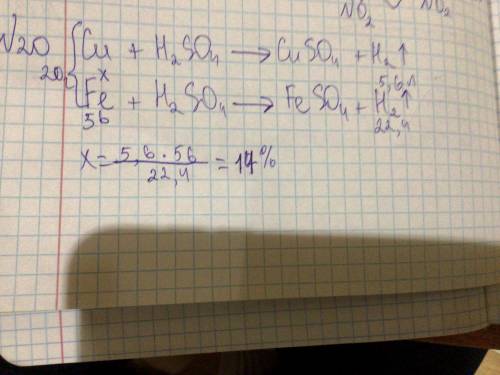 NO₂ NO₂
N20 Cu + H₂SO₄ → CuSO₄ + H₂↑
20 x 5,6 л
Fe + H₂SO₄ → FeSO₄ + H₂↑
56 22,4
x = 5,6 · 56 / 22,4 = 14%